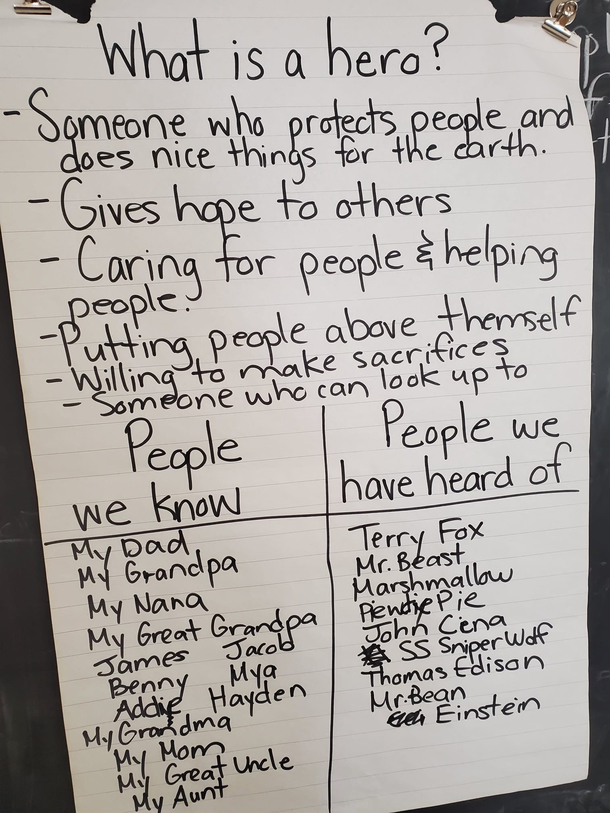 What is a hero?
- Someone who protects people and
does nice things for the earth.
- Gives hope to others
- Caring for people & helping
people.
- Putting people above themself
- Willing to make sacrifices
- Someone who can look up to
People
we know
My Dad
My Grandpa
My Nana
My Great Grandpa
James Jacob
Benny Mya
Addie Hayden
My Grandma
My Mom
My Great Uncle
My Aunt
People we
have heard of
Terry Fox
Mr. Beast
Marshmallow
PiewdiePie
John Cena
SS SniperWolf
Thomas Edison
Mr. Bean
Einstein